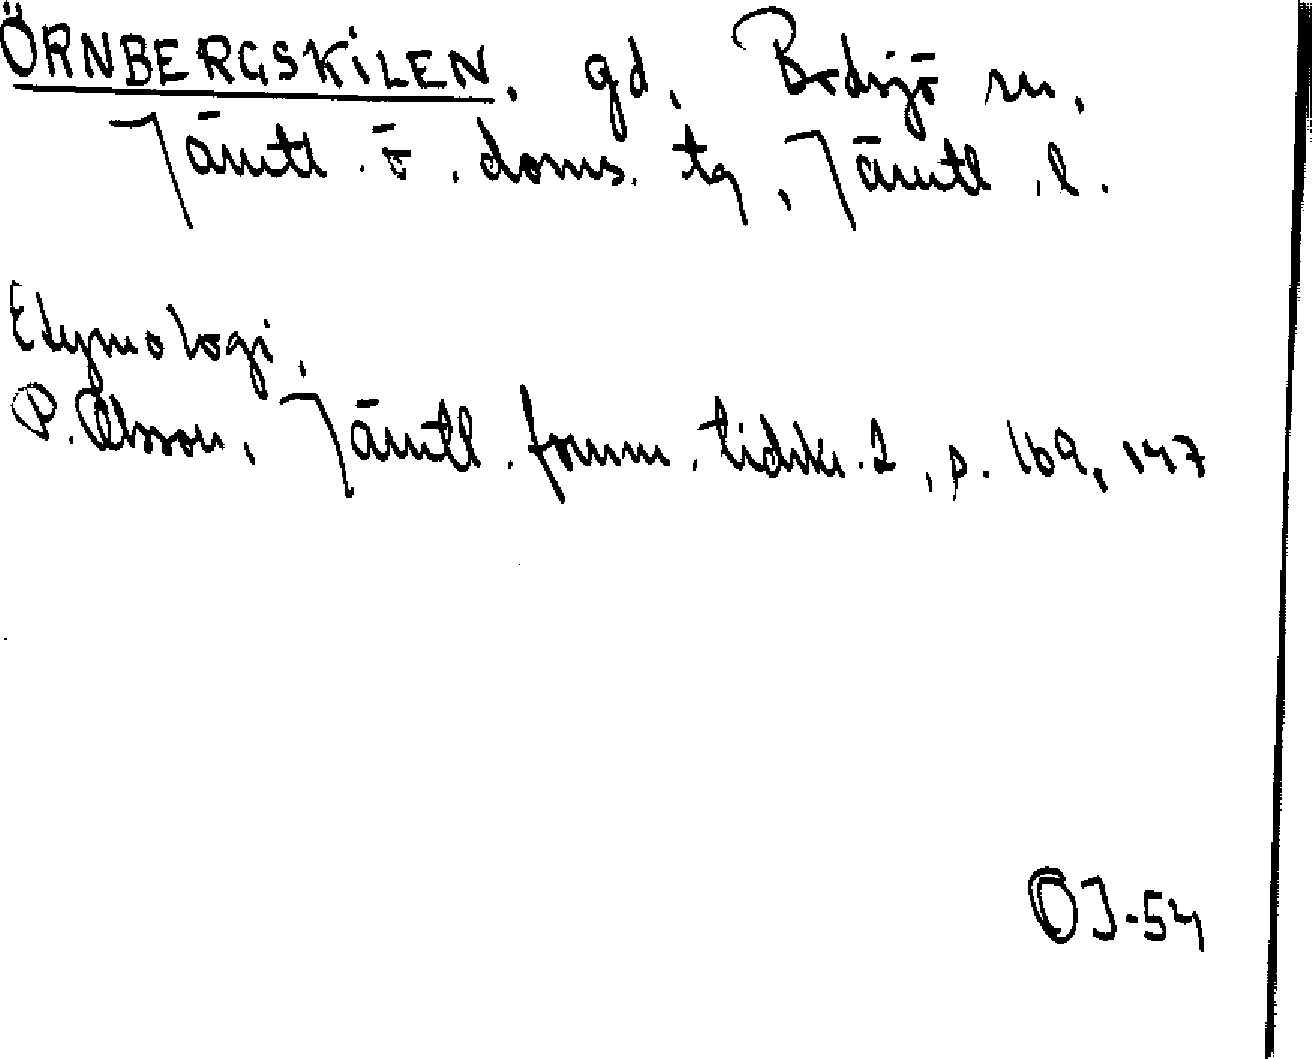 ÖRNBERGSKILEN, gd, Bodsjö sn,
Jämtl. ö. doms. tg, Jämtl. l.
Etymologi.
P. Olsson, Jämtl. fornm. tidskr. 2, s. 169, 147
OJ-54